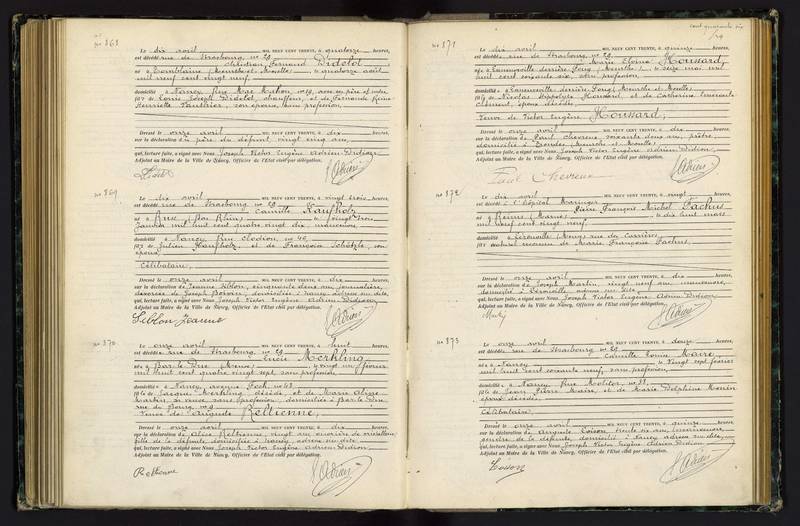 No 868
Le dix avril MIL NEUF CENT TRENTE, à quatorze heures,
est décédé rue de Strasbourg no 29
Christian Fernand Didelot
né à Tomblaine (Meurthe et Moselle) le quatorze août
mil neuf cent vingt neuf
domicilié à Nancy, Rue Mac Mahon, no
fils de Louis Joseph Didelot, chauffeur, et de Fernande
Henriette Vauthier, son épouse, sans profession
Dressé le onze avril MIL NEUF CENT TRENTE, à dix heures,
sur la déclaration du père du défunt, vingt cinq ans,
qui, lecture faite, a signé avec Nous Joseph Victor Eugène Adrien-Didion
Adjoint au Maire de la Ville de Nancy, Officier de l'Etat civil par délégation.
Adrien
No 869
Le dix avril MIL NEUF CENT TRENTE, à vingt trois heures,
est décédé rue de Strasbourg no 29
Camille Kaufholz
né à Russ (Bas Rhin) le vingt trois
janvier mil huit cent quatre vingt dix, manœuvre
domicilié à Nancy, Rue Clodion, no 46
fils de Julien Kaufholz et de Françoise Schätzle, son
épouse
Célibataire,
Dressé le onze avril MIL NEUF CENT TRENTE, à dix heures,
sur la déclaration de Jeanne Leblon, cinquante deux ans, journalière,
divorcée de Joseph Poirson, domiciliée à Nancy, adresse sus dite,
qui, lecture faite, a signé avec Nous Joseph Victor Eugène Adrien-Didion
Adjoint au Maire de la Ville de Nancy, Officier de l'Etat civil par délégation.
Leblon Jeanne
Adrien
No 870
Le onze avril MIL NEUF CENT TRENTE, à huit heures,
est décédée rue de Strasbourg, no 29
Lucie Merkling
née à Bar-le-Duc (Meuse) le vingt un février
mil huit cent quatre vingt sept, sans profession
domiciliée à Nancy, avenue Foch no 43
fille de Jacques Merkling décédé, et de Marie Aline
Martin, sa veuve, sans profession, domiciliée à Bar-le-Duc
rue du Bourg, no
Veuve de Auguste Rellienne,
Dressé le onze avril MIL NEUF CENT TRENTE, à dix heures,
sur la déclaration de Alice Rellienne, vingt ans, ouvrière
fille de la défunte, domiciliée à Nancy, adresse sus dite,
qui, lecture faite, a signé avec Nous Joseph Victor Eugène Adrien-Didion
Adjoint au Maire de la Ville de Nancy, Officier de l'Etat civil par délégation.
Rellienne
Adrien
cent quarante six
No 871
Le dix avril MIL NEUF CENT TRENTE, à quinze heures,
est décédée rue de Strasbourg no 29
Marie Houssard
née à Laneuveville derrière Foug (Meurthe et Moselle) le seize mai mil
huit cent soixante six, sans profession
domiciliée à Laneuveville derrière Foug (Meurthe et Moselle)
fille de Nicolas Hippolyte Houssard, et de Catherine
Clément, époux décédés,
Veuve de Victor Eugène Houssard,
Dressé le onze avril MIL NEUF CENT TRENTE, à dix heures,
sur la déclaration de Paul Chevreux, soixante deux ans, prêtre,
domicilié à (Meurthe et Moselle)
qui, lecture faite, a signé avec Nous Joseph Victor Eugène Adrien-Didion
Adjoint au Maire de la Ville de Nancy, Officier de l'Etat civil par délégation.
Paul Chevreux
Adrien
No 872
Le dix avril MIL NEUF CENT TRENTE, à vingt heures,
est décédé à l'hôpital Maringer
Pierre François Michel Pachus
né à Reims (Marne) le dix huit mars
mil neuf cent vingt neuf
domicilié à Lérouville (Meuse) rue de Carrières
fils naturel reconnu de Marie Françoise Pachus,
Dressé le onze avril MIL NEUF CENT TRENTE, à dix heures,
sur la déclaration de Joseph Martin, vingt neuf ans, manœuvre,
domicilié à Lérouville, adresse sus dite
qui, lecture faite, a signé avec Nous Joseph Victor Eugène Adrien-Didion
Adjoint au Maire de la Ville de Nancy, Officier de l'Etat civil par délégation.
Adrien
No 873
Le onze avril MIL NEUF CENT TRENTE, à douze heures,
est décédée rue de Strasbourg, no 29
Camille Louise Maire
née à Nancy le vingt sept février
mil huit cent soixante neuf, sans profession
domiciliée à Nancy, Rue Molitor, no 38,
fille de Jean Pierre Maire, et de Marie Delphine Monin
époux décédés,
Célibataire,
Dressé le onze avril MIL NEUF CENT TRENTE, à quinze heures,
sur la déclaration de Auguste Coison, trente six ans,
gendre de la défunte, domicilié à Nancy, adresse sus dite,
qui, lecture faite, a signé avec Nous Joseph Victor Eugène Adrien-Didion
Adjoint au Maire de la Ville de Nancy, Officier de l'Etat civil par délégation.
Coison
Adrien